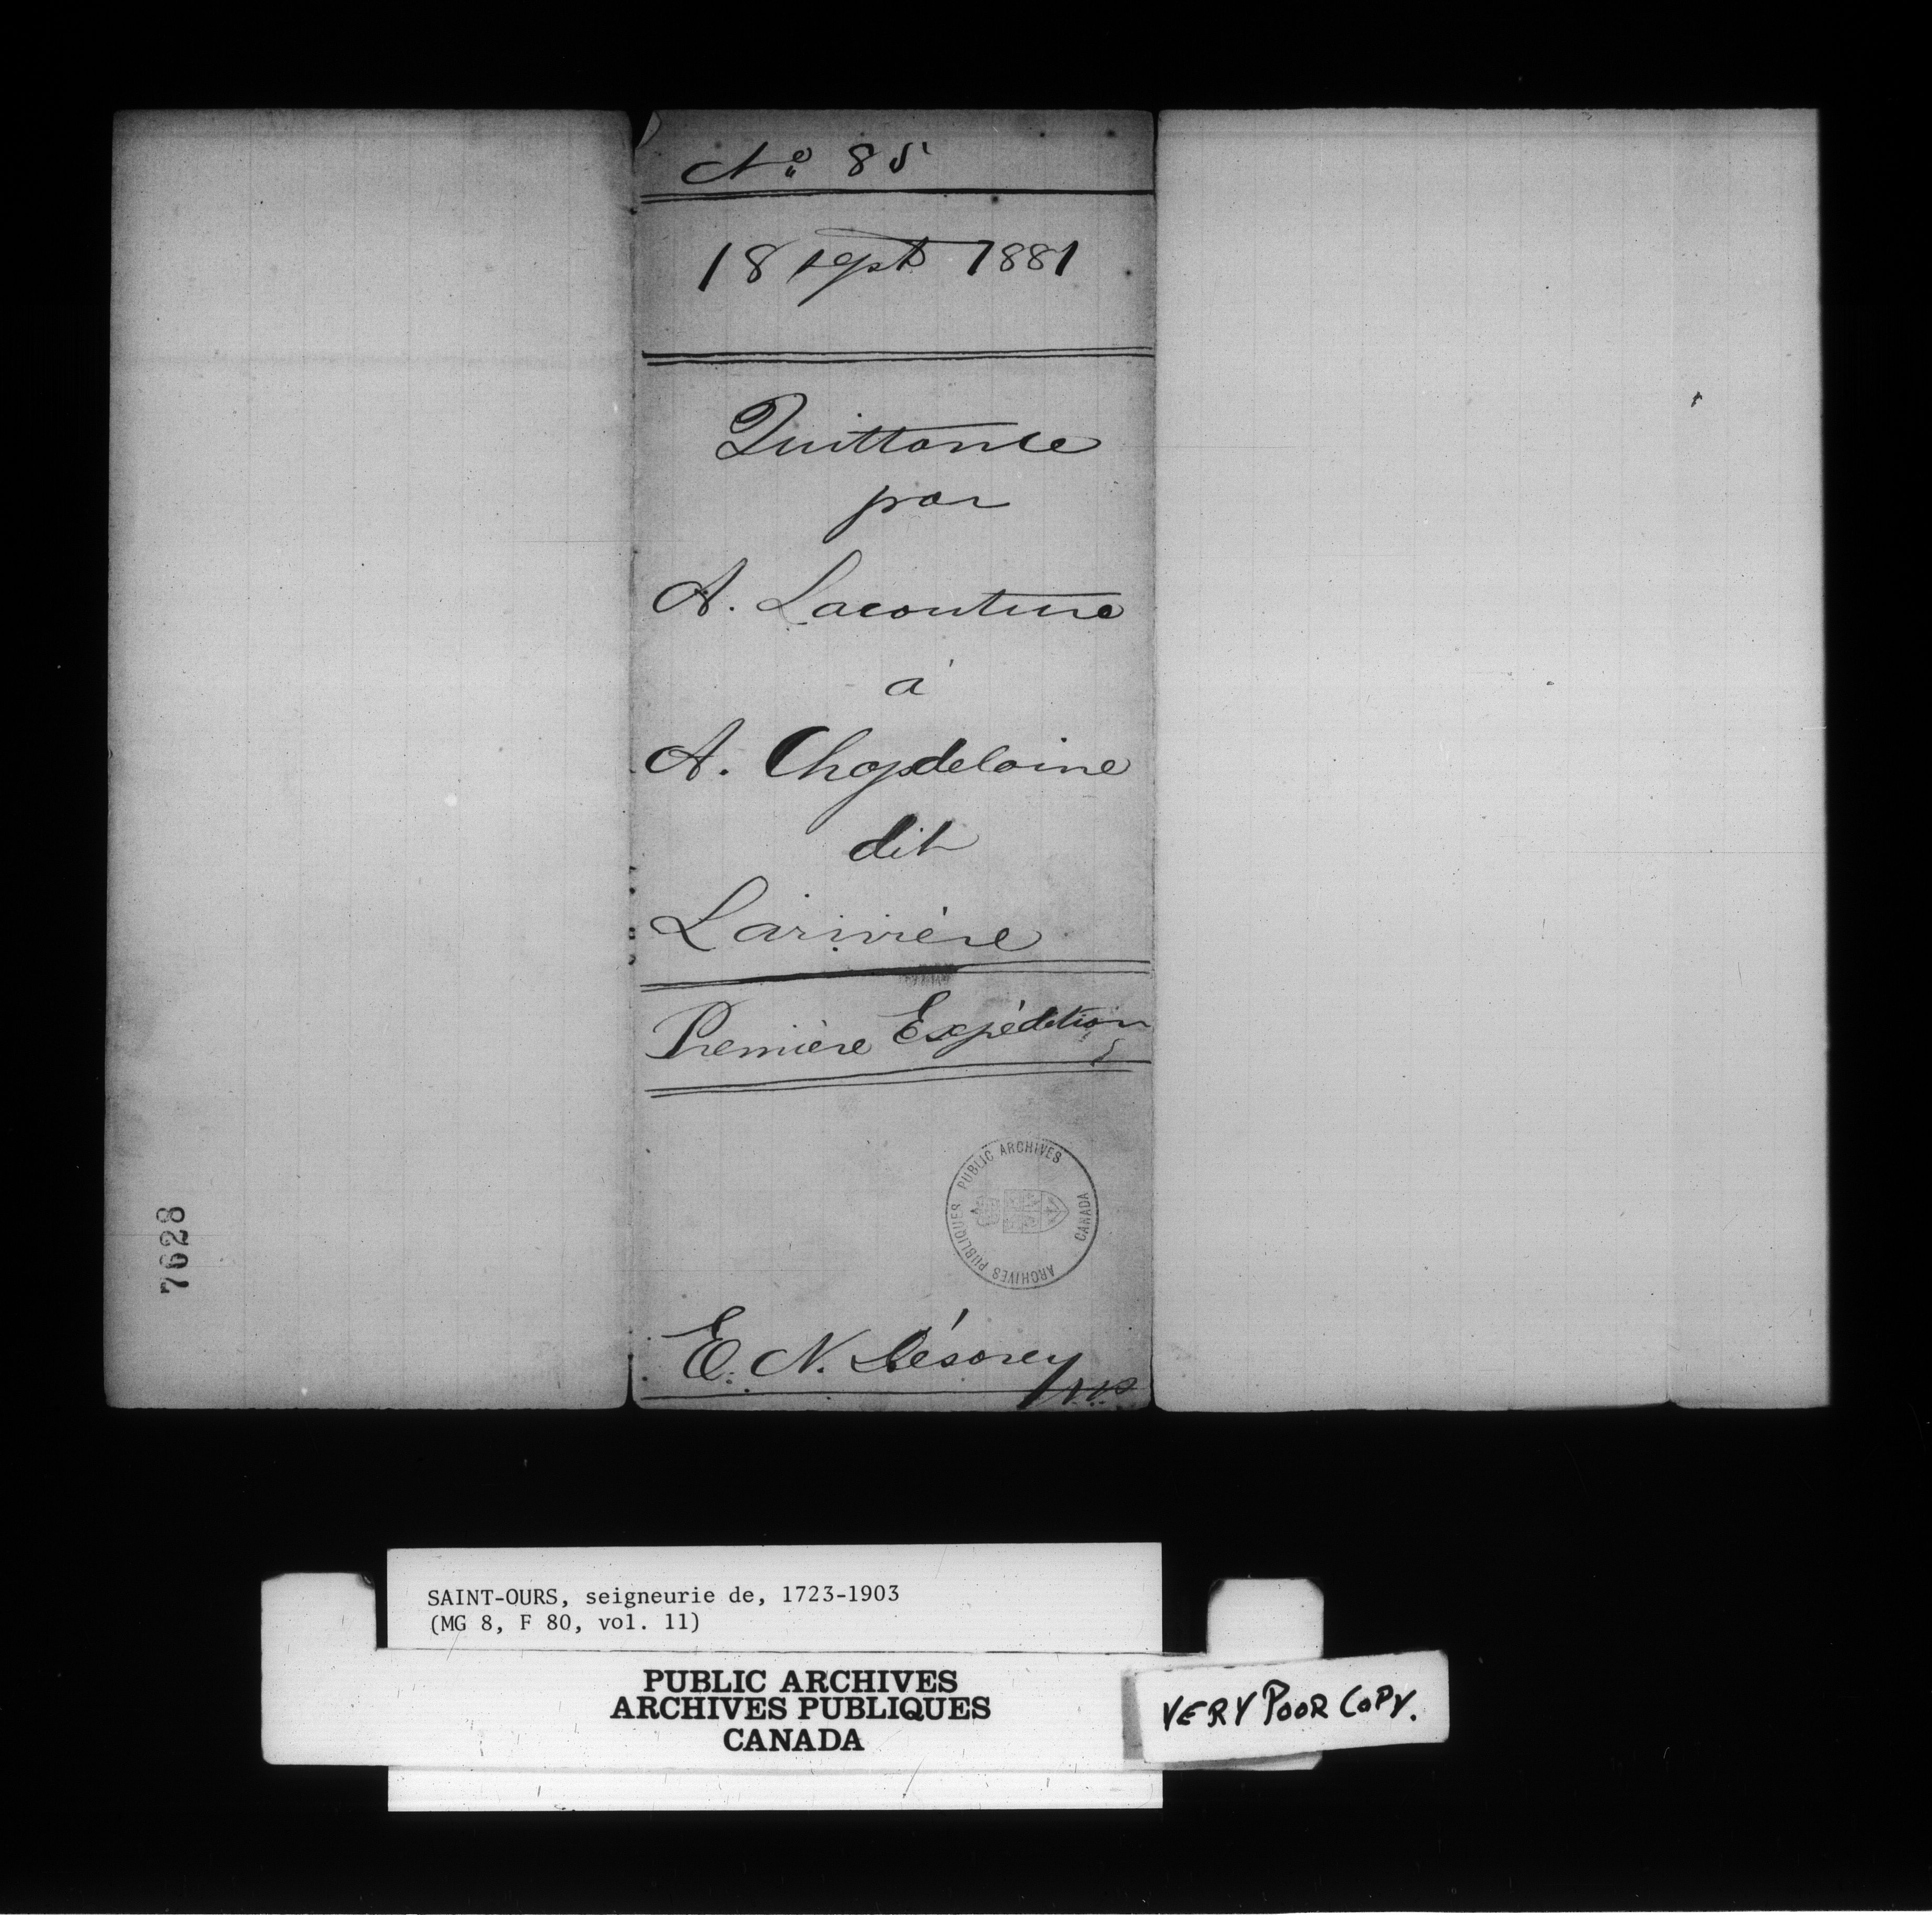 No 85
18 sept 1881
Quittance
par
A. Lacouture
à
A. Chapdelaine
dit
Larivière
Première Expédition
PUBLIC ARCHIVES
ARCHIVES PUBLIQUES
CANADA
E. N. Désorcy
N.P.
7628
SAINT-OURS, seigneurie de, 1723-1903
(MG 8, F 80, vol. 11)
PUBLIC ARCHIVES
ARCHIVES PUBLIQUES
CANADA
VERY POOR COPY.